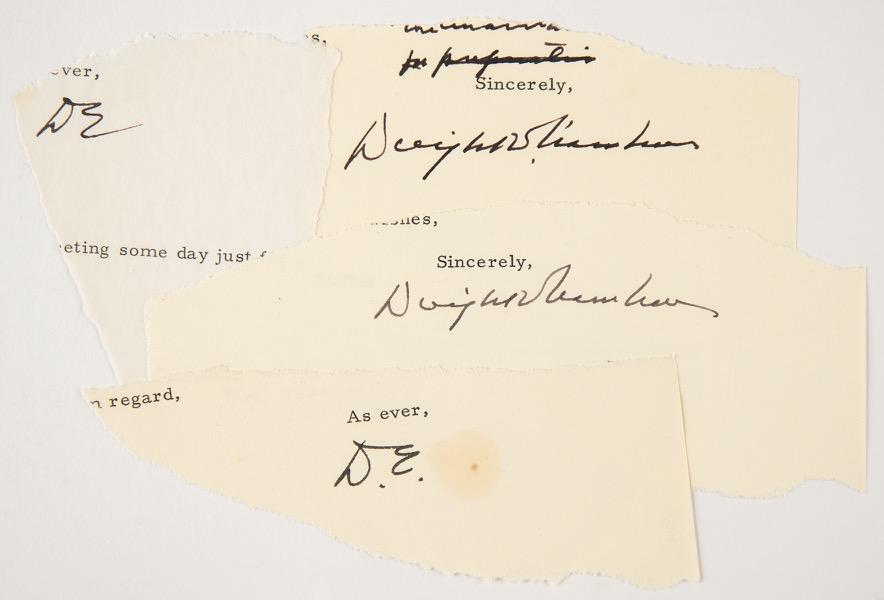 ever,
DE
eting some day just f
s,
Sincerely,
Dwight D Eisenhower
ishes,
Sincerely,
Dwight D Eisenhower
n regard,
As ever,
D.E.